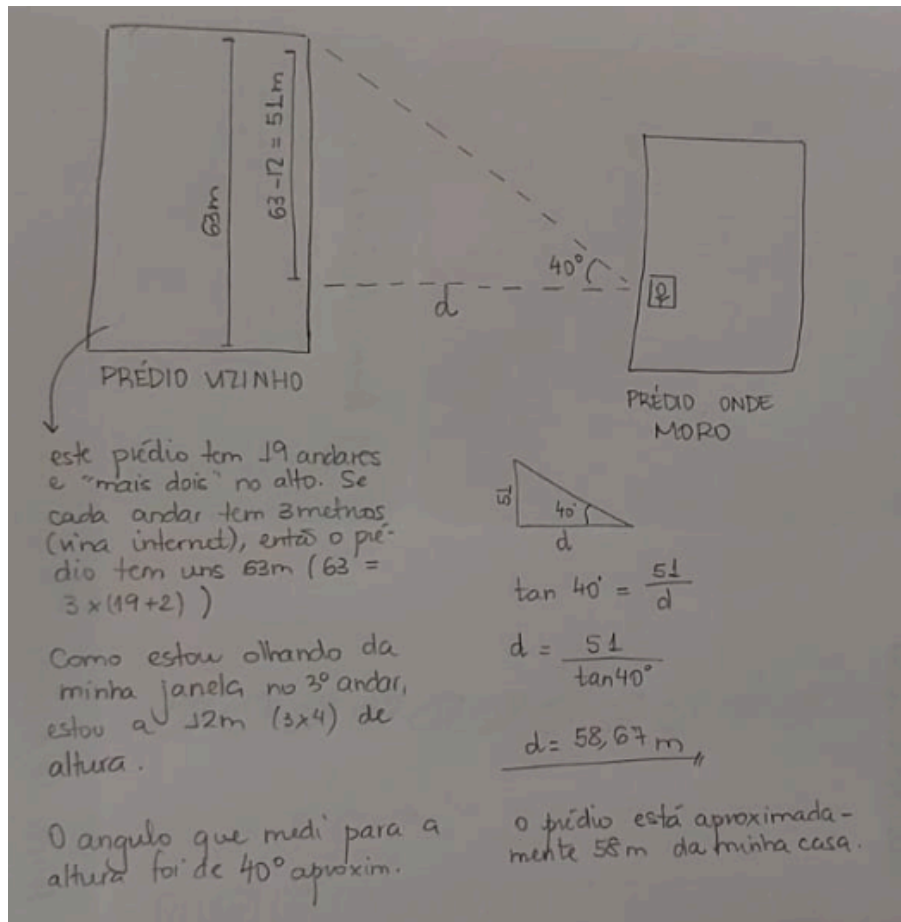 63m
63-12 = 51m
40°
d
PRÉDIO VIZINHO
PRÉDIO ONDE
MORO
este prédio tem 19 andares
e "mais dois" no alto. Se
cada andar tem 3 metros
(vi na internet), então o pré-
dio tem uns 63m (63 =
3 x (19+2) )
Como estou olhando da
minha janela no 3º andar,
estou a 12m (3x4) de
altura.
O angulo que medi para a
altura foi de 40° aproxim.
51
40°
d
tan 40° = 51/d
d = 51/tan40°
d= 58,67 m
o prédio está aproximada-
mente 58m da minha casa.